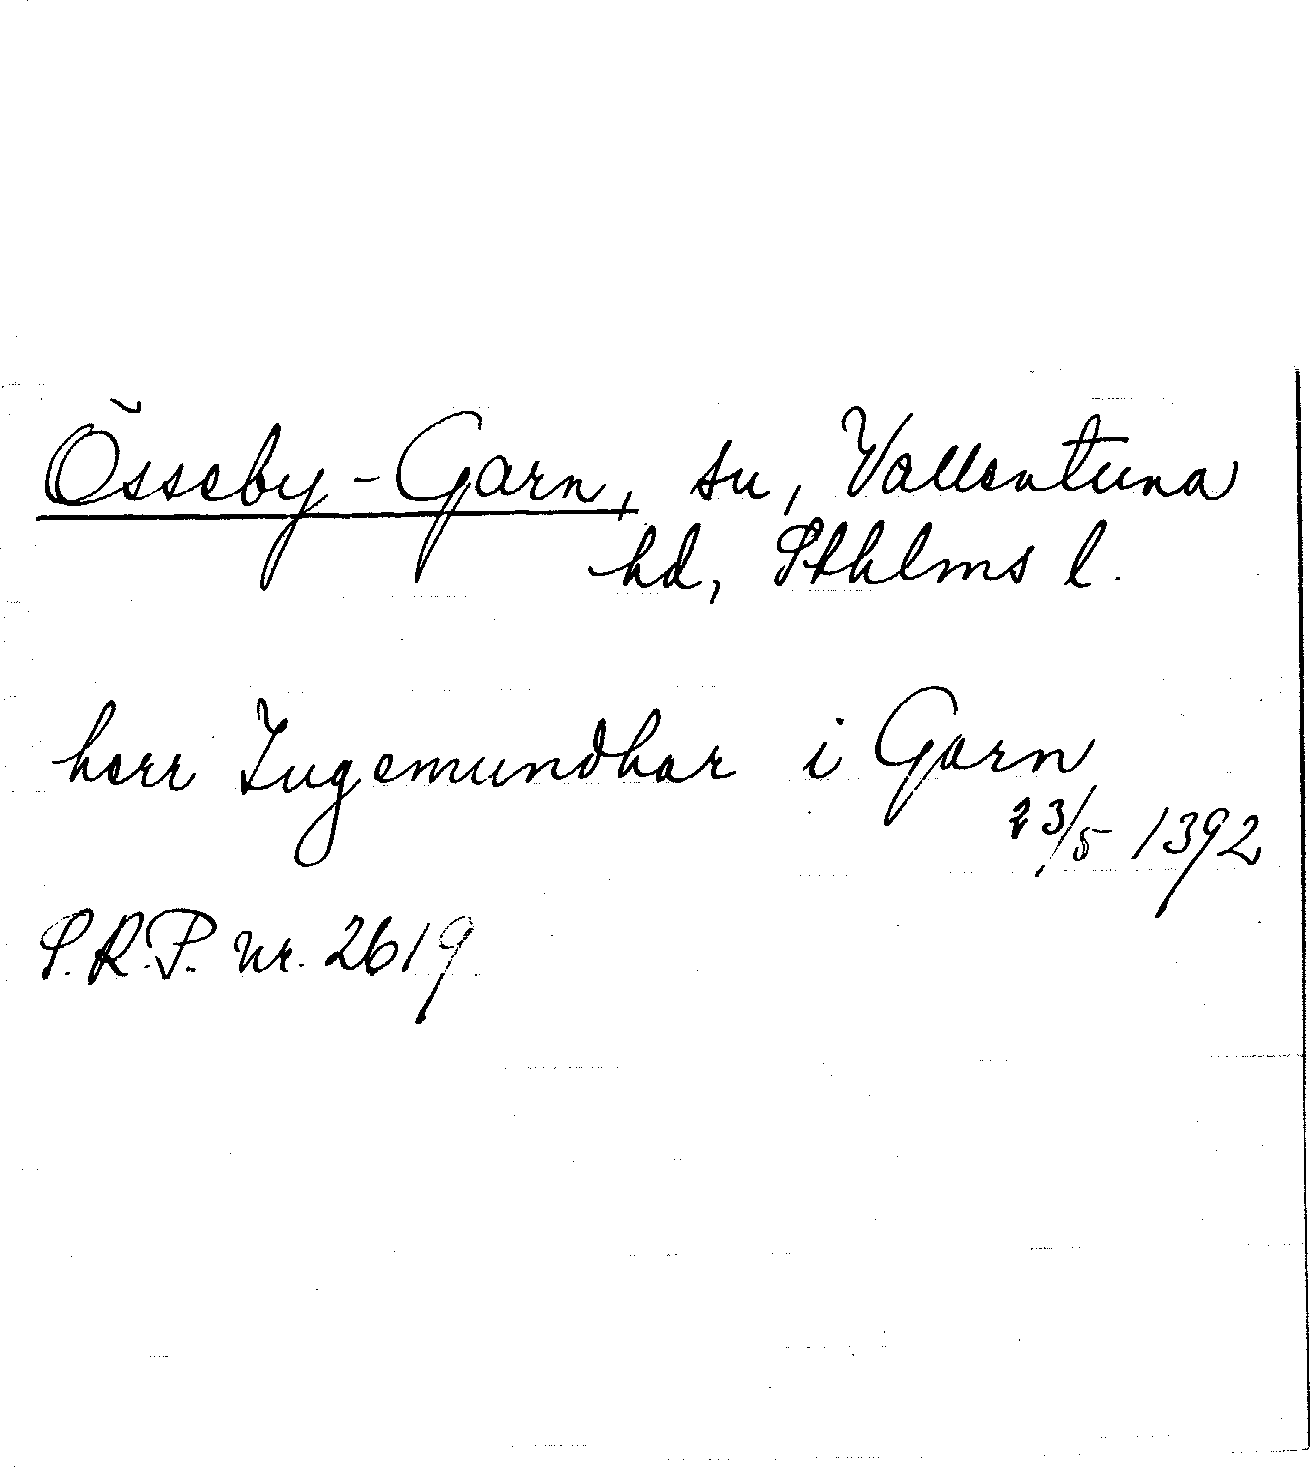 Össeby-Garn, sn, Vallentuna
hd, Sthlms l.
herr Ingemundhar i Garn
23/5 1392
S.R.P. nr. 2619